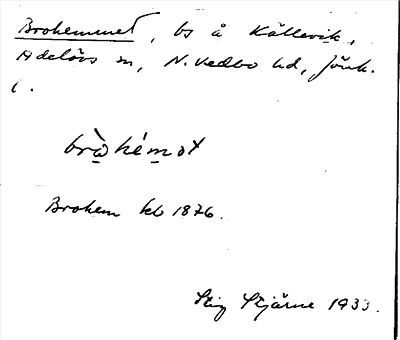 Brohemmet, bs å Källevik,
Adelövs sn, N. Vedbo hd, Jönk.
l.
bròhémət
Brohem kb 1876.
Stig Stjärne 1933.